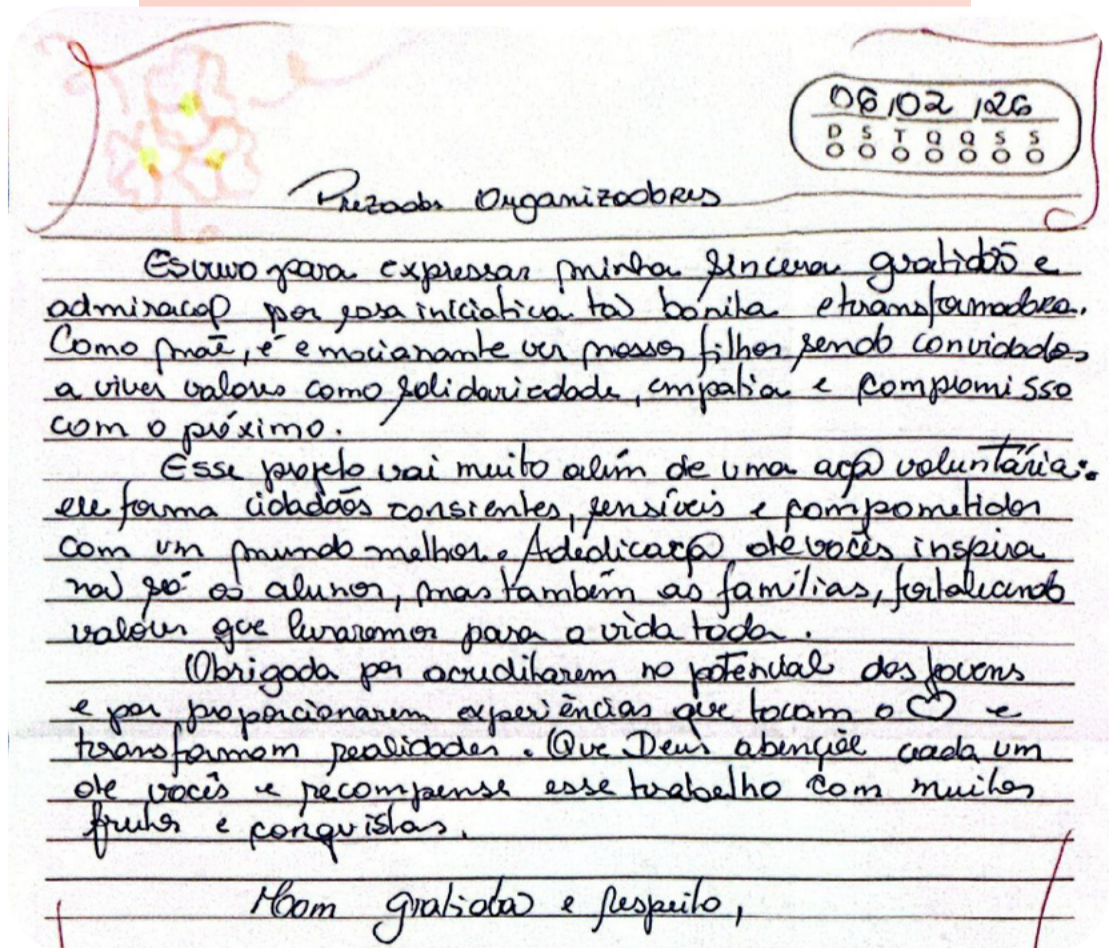 06/02/26
D S T Q Q S S
Prezados Organizadores
Escrevo para expressar minha sincera gratidão e
admiração por essa iniciativa tão bonita e transformadora.
Como mãe, é emocionante ver nossos filhos sendo convidados
a viver valores como solidariedade, empatia e compromisso
com o próximo.
Esse projeto vai muito além de uma ação voluntária:
ele forma cidadãos consientes, sensíveis e comprometidos
com um mundo melhor. A dedicação de vocês inspira
não só os alunos, mas também as famílias, fortalecendo
valores que levaremos para a vida toda.
Obrigada por acreditarem no potencial dos jovens
e por proporcionarem experiências que tocam o ♡ e
transformam realidades. Que Deus abençõe cada um
de vocês e recompense esse trabalho com muitos
frutos e conquistas.
Com gratidão e respeito,